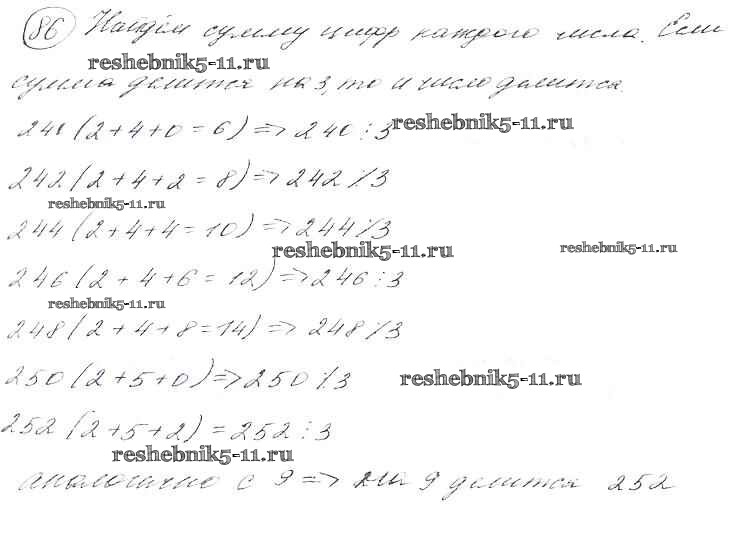 86 Найдём сумму цифр каждого числа. Если
reshebnik5-11.ru
сумма делится на 3, то и число делится.
240 (2+4+0=6) => 240 ⋮ 3 reshebnik5-11.ru
242 (2+4+2=8) => 242 ⋮̸ 3
reshebnik5-11.ru
244 (2+4+4=10) => 244 ⋮̸ 3
reshebnik5-11.ru reshebnik5-11.ru
246 (2+4+6=12) => 246 ⋮ 3
reshebnik5-11.ru
248 (2+4+8=14) => 248 ⋮̸ 3
250 (2+5+0) => 250 ⋮̸ 3 reshebnik5-11.ru
252 (2+5+2) = 252 ⋮ 3
reshebnik5-11.ru
аналогично с 9 => на 9 делится 252